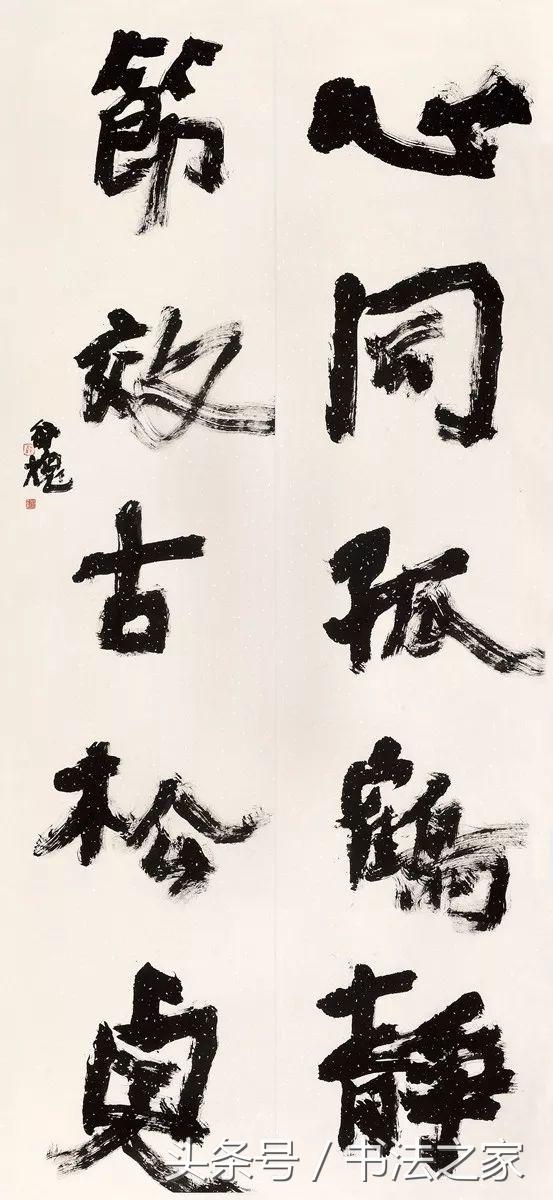 心同孤鶴靜
節效古松貞
头条号 / 书法之家